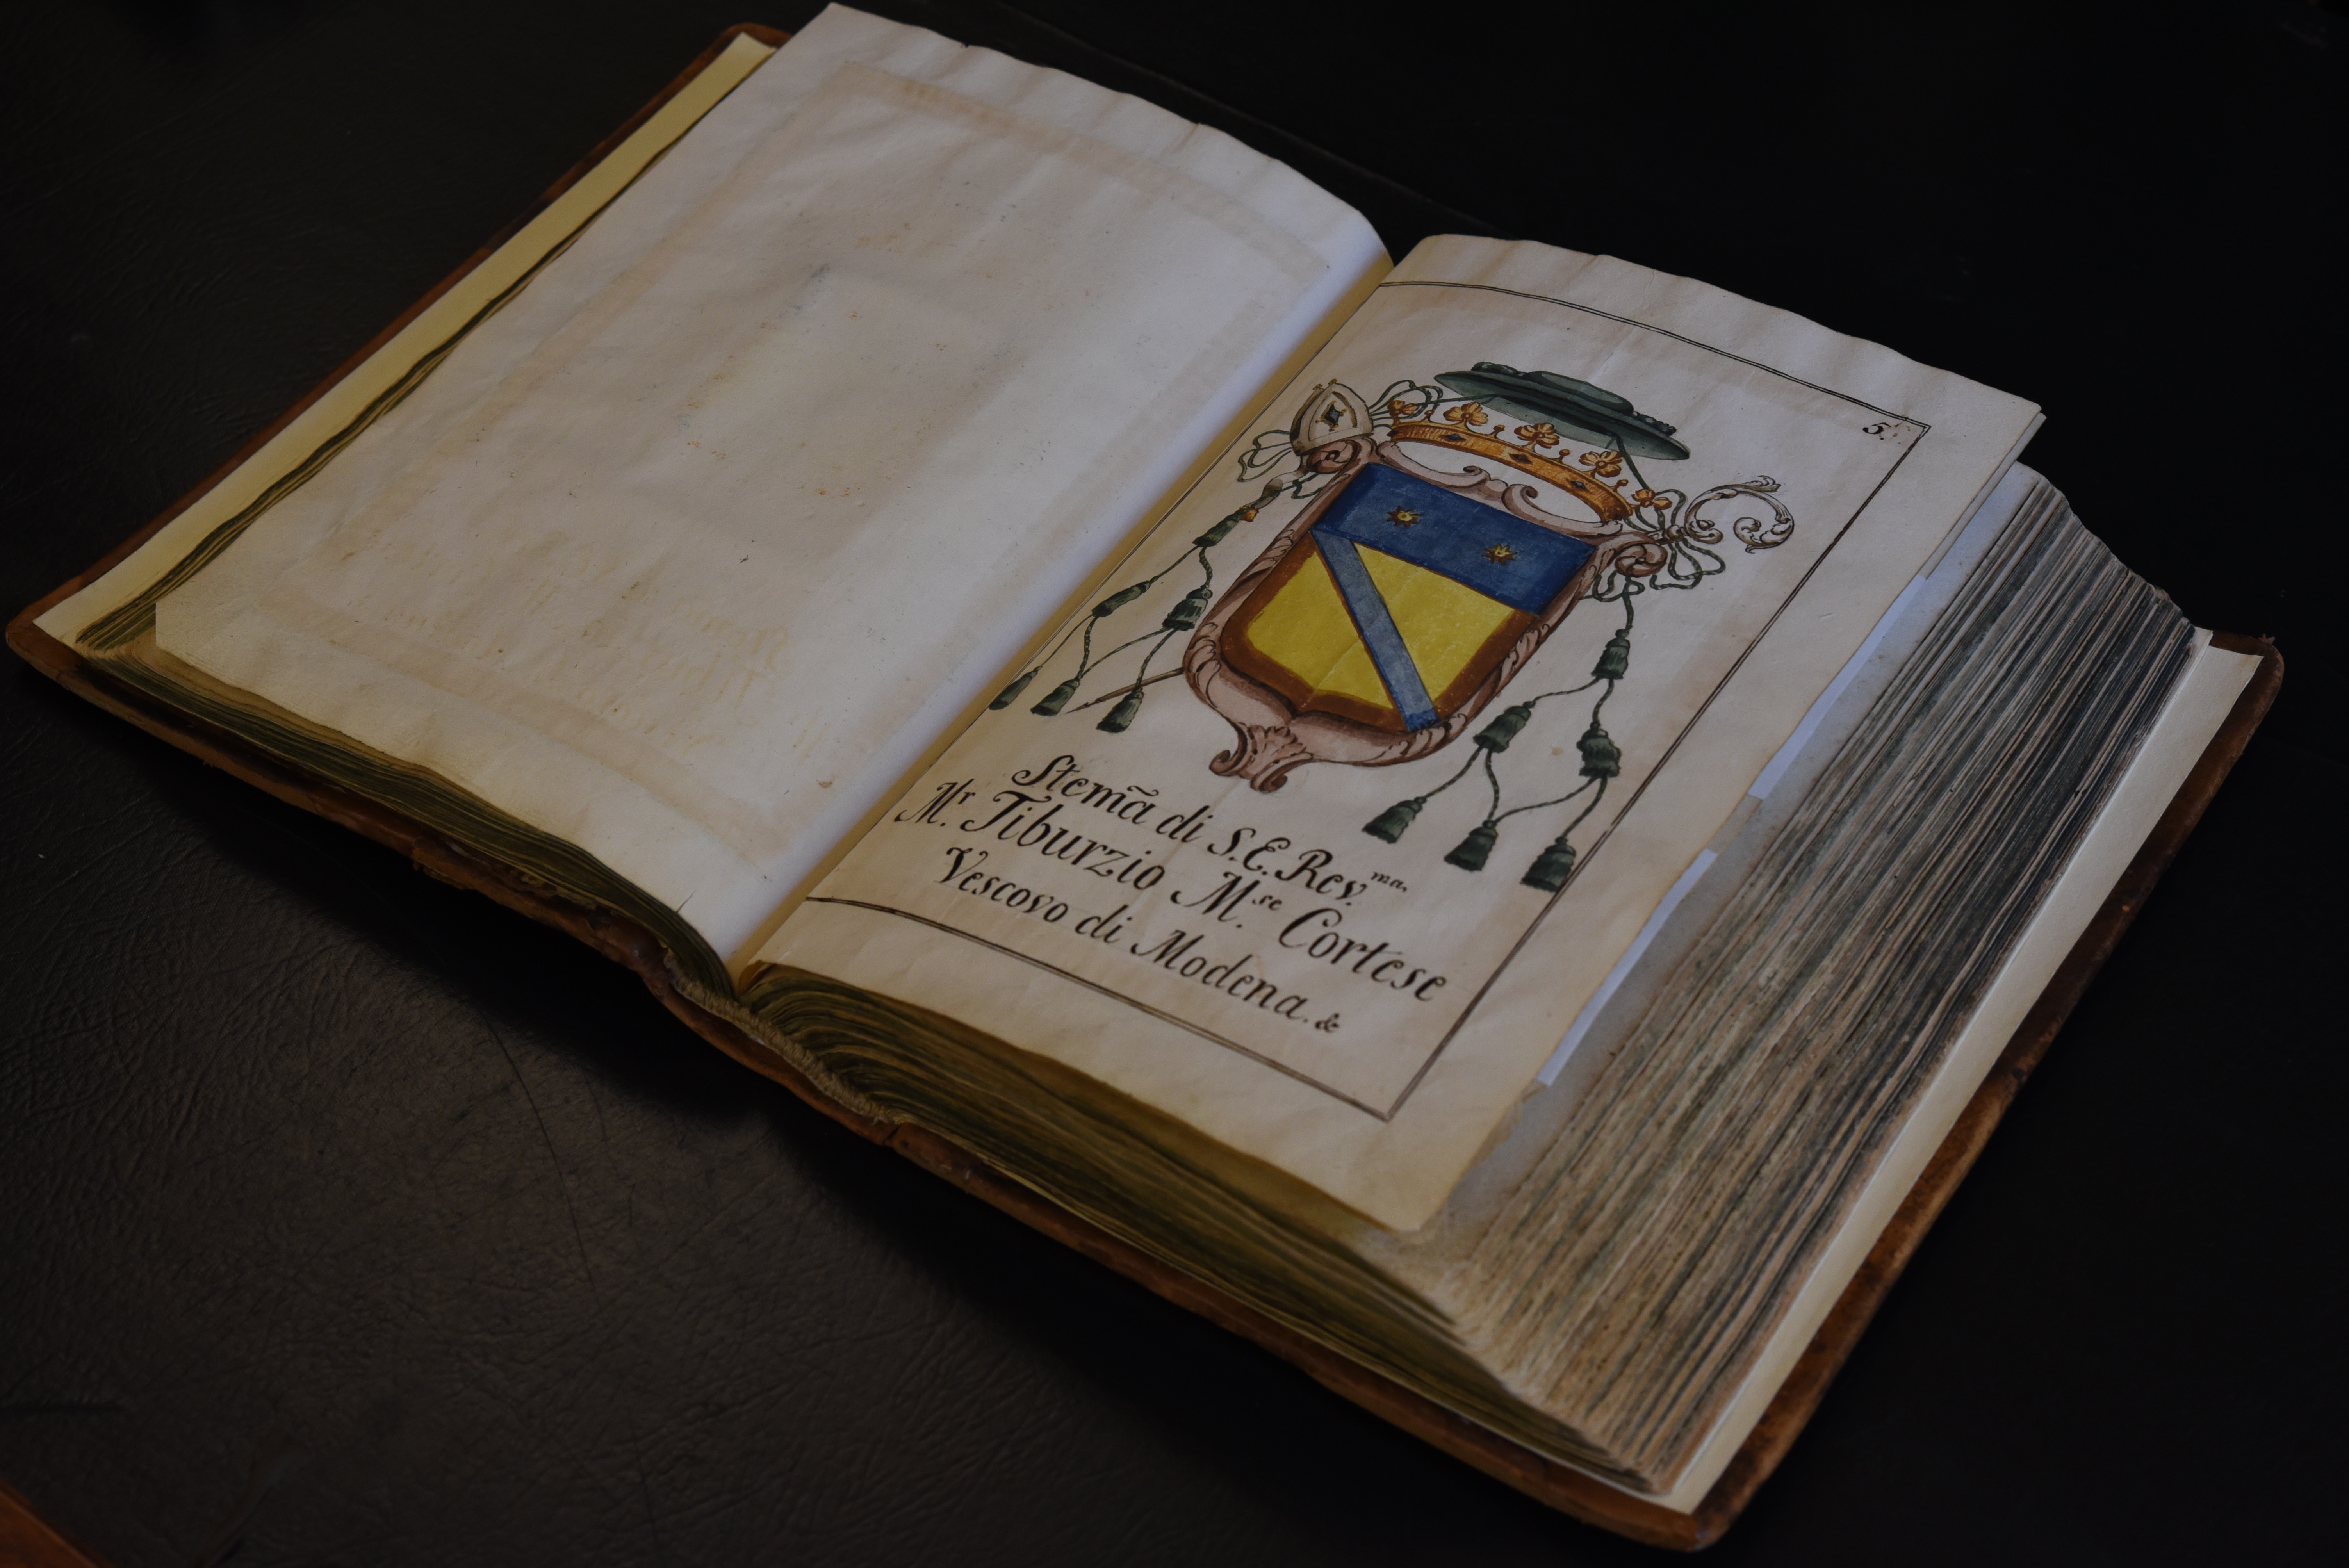 5.
Stemā di S.E. Rev.ma
Mr. Tiburzio M.se Cortese
Vescovo di Modena. &